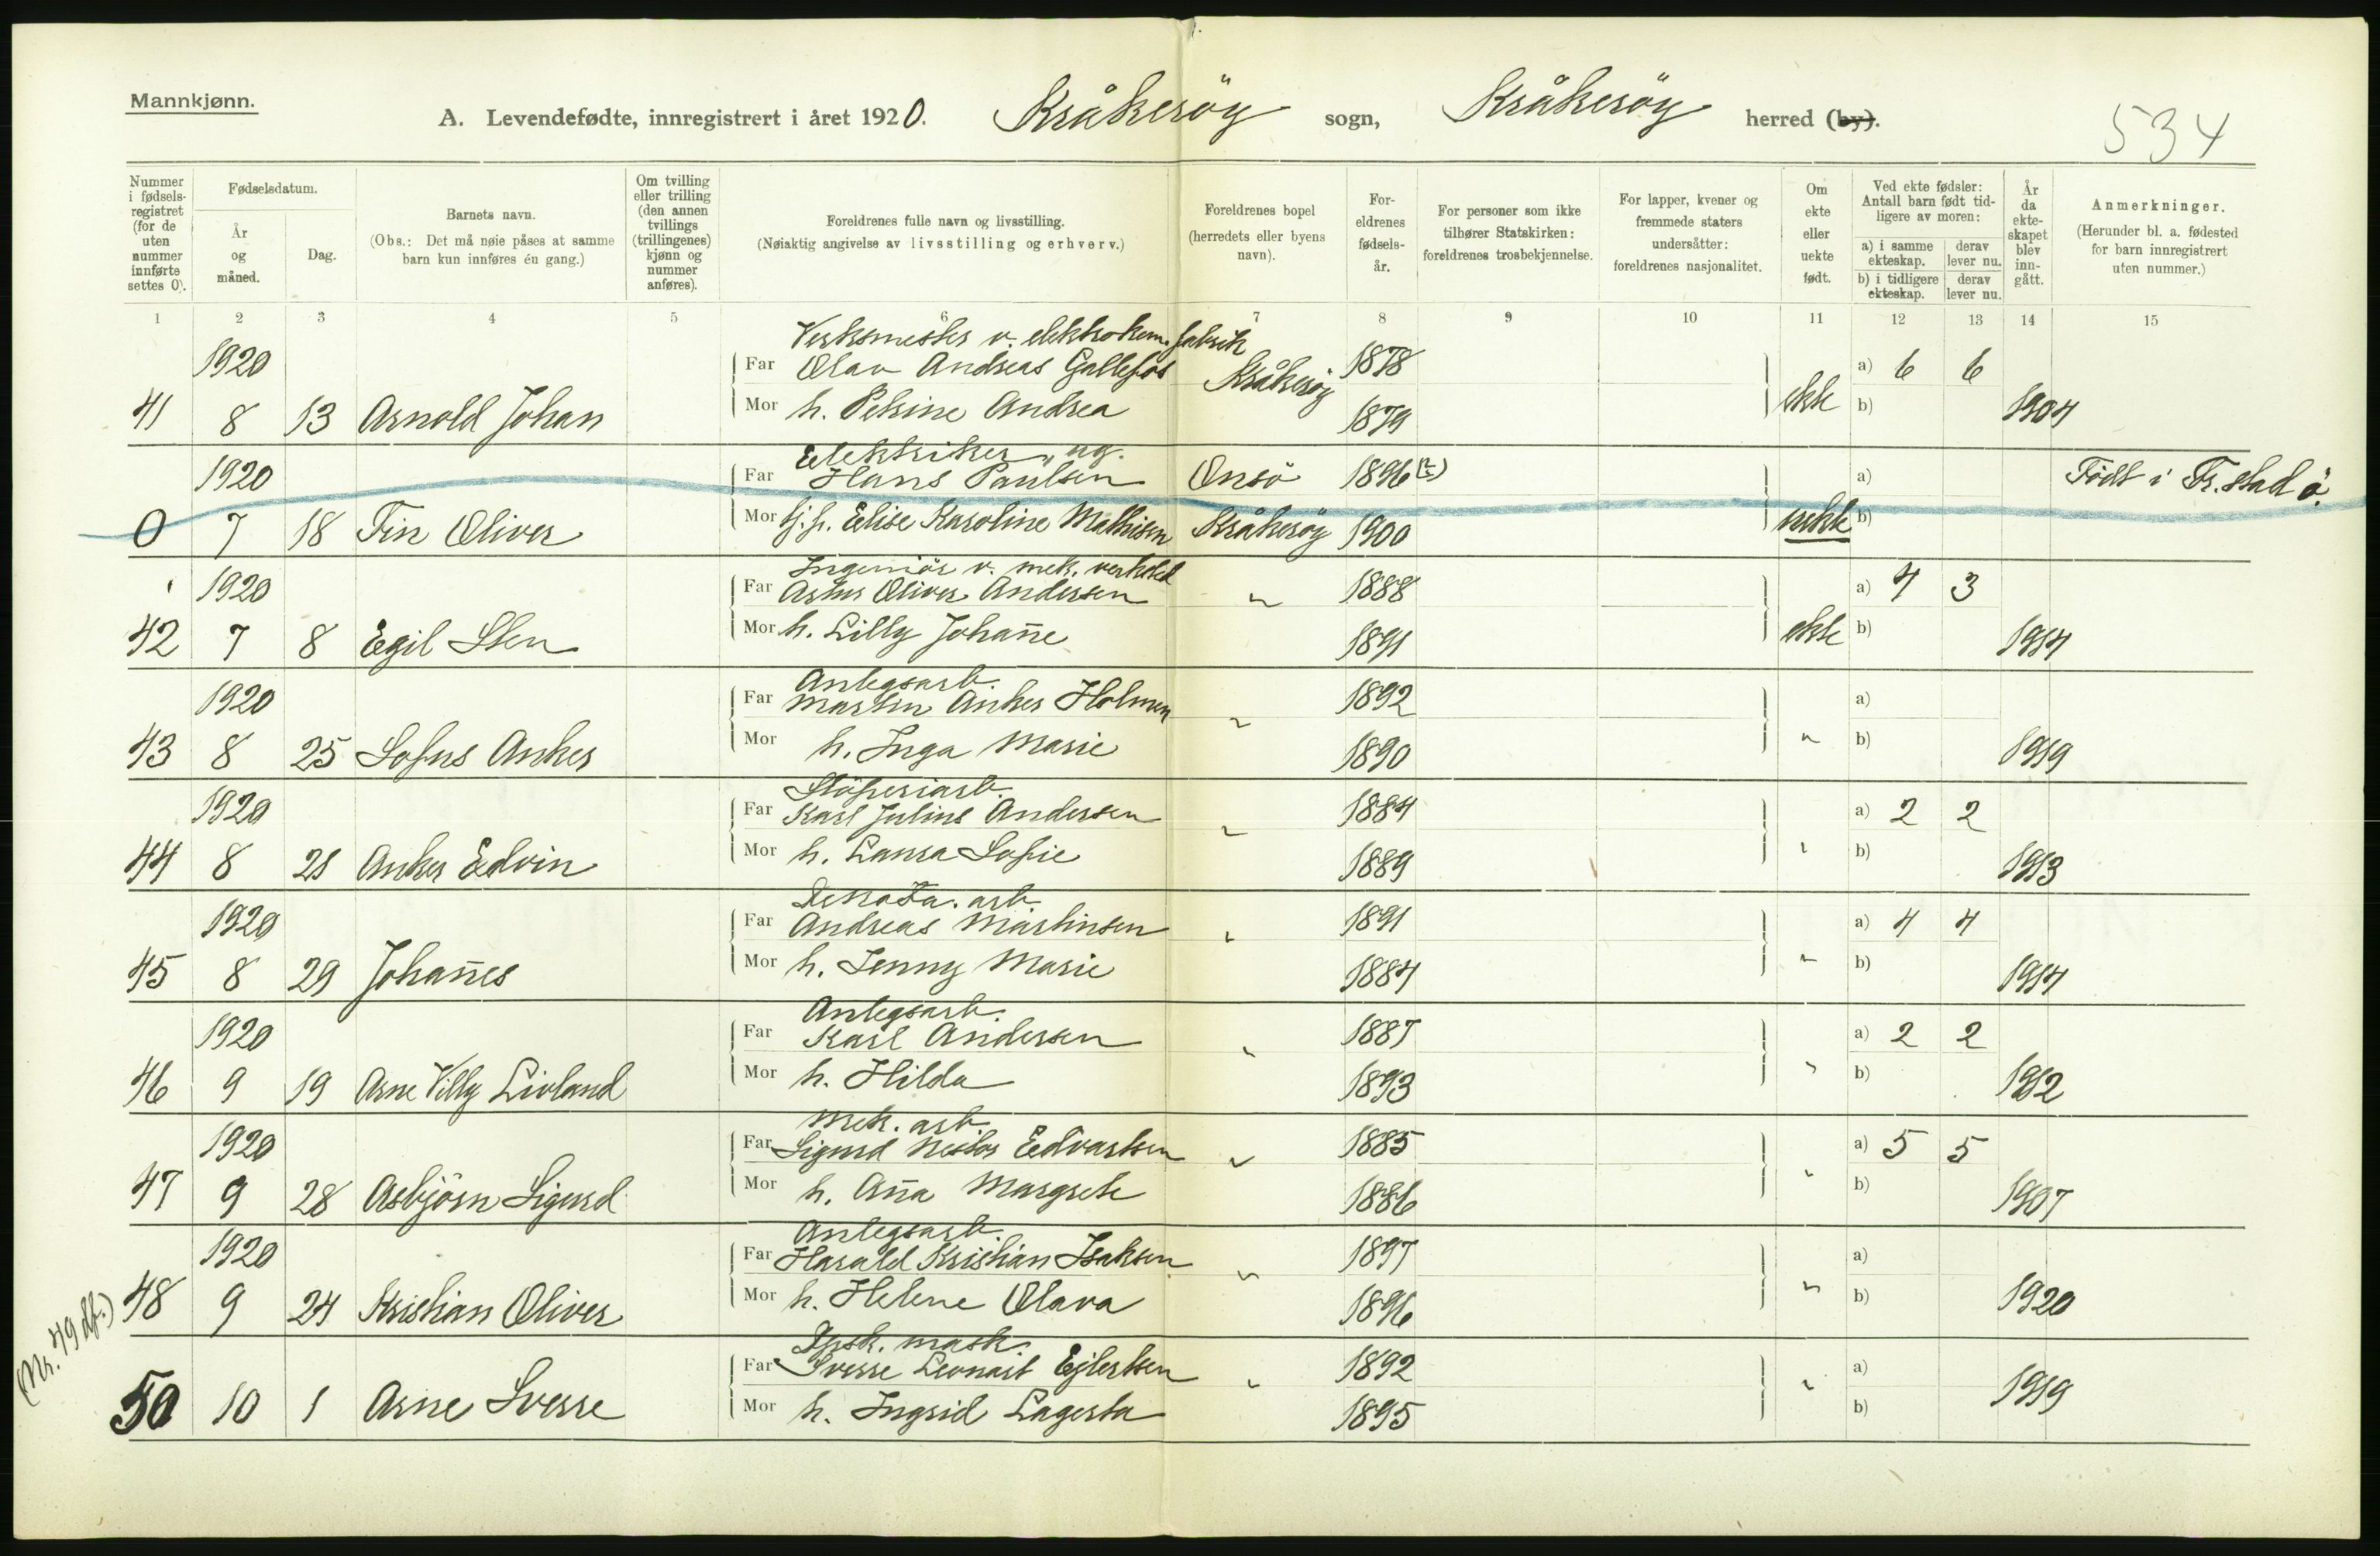 Mannkjønn.
A. Levendefødte, innregistrert i året 1920. Kråkerøy sogn, Kråkerøy herred (by).
534
Nummer i fødselsregistret (for de uten nummer innførte settes 0).
Fødselsdatum.
År og måned.
Dag.
Barnets navn.
(Obs.: Det må nøie påses at samme barn kun innføres én gang.)
Om tvilling eller trilling (den annen tvillings (trillingenes) kjønn og nummer anføres).
Foreldrenes fulle navn og livsstilling.
(Nøiaktig angivelse av livsstilling og erhverv.)
Foreldrenes bopel (herredets eller byens navn).
Foreldrenes fødselsår.
For personer som ikke tilhører Statskirken: foreldrenes trosbekjennelse.
For lapper, kvener og fremmede staters undersåtter: foreldrenes nasjonalitet.
Om ekte eller uekte født.
Ved ekte fødsler: Antall barn født tidligere av moren:
a) i samme ekteskap. derav lever nu.
b) i tidligere ekteskap. derav lever nu.
År da ekteskapet blev inngått.
Anmerkninger.
(Herunder bl. a. fødested for barn innregistrert uten nummer.)
1 2 3 4 5 6 7 8 9 10 11 12 13 14 15
Verksmester v. elektrokem. fabrik
1920 Far Olav Andreas Gallefos Kråkerøy 1878 a) 6 6
41 8 13 Arnold Johan Mor h. Petrine Andrea 1879 ekte b) 1904
Elektriker, ug.
1920 Far Hans Paulsen Onsö 1896 (?) a) Födt i Fr.stad ö.
0 7 18 Fin Oliver Mor tj.p. Elise Karoline Mathisen Kråkeröy 1900 uekte b)
Ingeniör v. mek. verksted
1920 Far Oliver Andersen " 1888 a) 4 3
42 7 8 Egil Sten Mor h. Lilly Johan̄e 1891 ekte b) 1914
Anlegsarb.
1920 Far Martin Anker Holmen " 1892 a)
43 8 25 Lofus Anker Mor h. Inga Marie 1890 " b) 1919
Stöperiarb.
1920 Far Karl Julius Andersen " 1884 a) 2 2
44 8 21 Anker Edvin Mor h. Laura Sofie 1889 " b) 1913
arb.
1920 Far Andreas Martinsen " 1891 a) 4 4
45 8 29 Johan̄es Mor h. Jenny Marie 1884 " b) 1914
Anlegsarb.
1920 Far Karl Andersen " 1887 a) 2 2
46 9 19 Arne Villy Livland Mor h. Hilda 1893 " b) 1912
Mek. arb.
1920 Far Sigurd Nestor Edvartsen " 1885 a) 5 5
47 9 28 Asbjörn Sigurd Mor h. An̄a Margrete 1886 " b) 1907
Anlegsarb.
1920 Far Harald Kristian Isaksen " 1897 a)
48 9 24 Kristian Oliver Mor h. Helene Olava 1896 " b) 1920
(Nr. 49 df.)
mask.
Far Sverre Leonart Ejlertsen " 1892 a)
50 10 1 Arne Sverre Mor h. Ingrid Lagerta 1895 " b) 1919